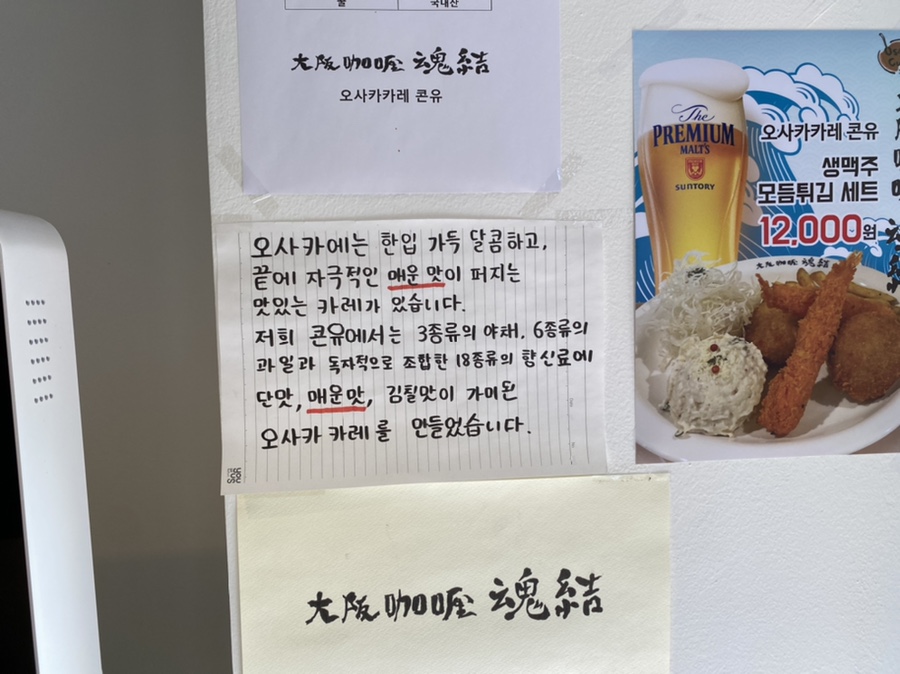 쌀
국내산
大阪咖喱 魂結
오사카카레 콘유
오사카에는 한입 가득 달콤하고,
끝에 자극적인 매운 맛이 퍼지는
맛있는 카레가 있습니다.
저희 콘유에서는 3종류의 야채, 6종류의
과일과 독자적으로 조합한 18종류의 향신료에
단맛, 매운맛, 감칠맛이 가미된
오사카 카레를 만들었습니다.
大阪咖喱 魂結
The
PREMIUM
MALT'S
SUNTORY
오사카카레 콘유
생맥주
모듬튀김 세트
12,000원
大阪咖喱 魂結